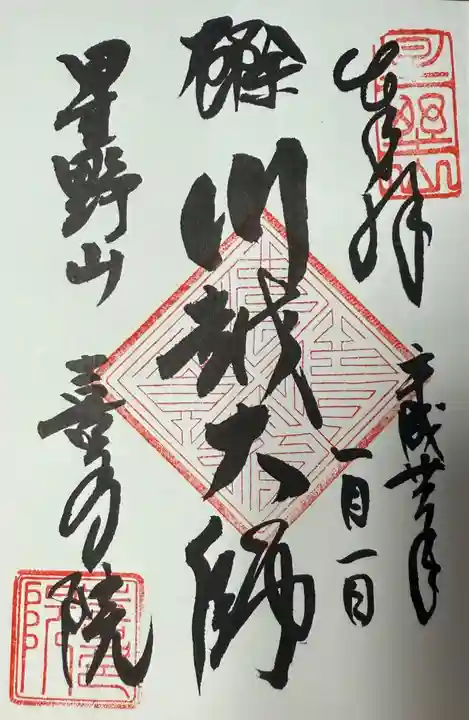 奉拝
平成年
一月一日
厄除
川越大師
星野山
喜多院